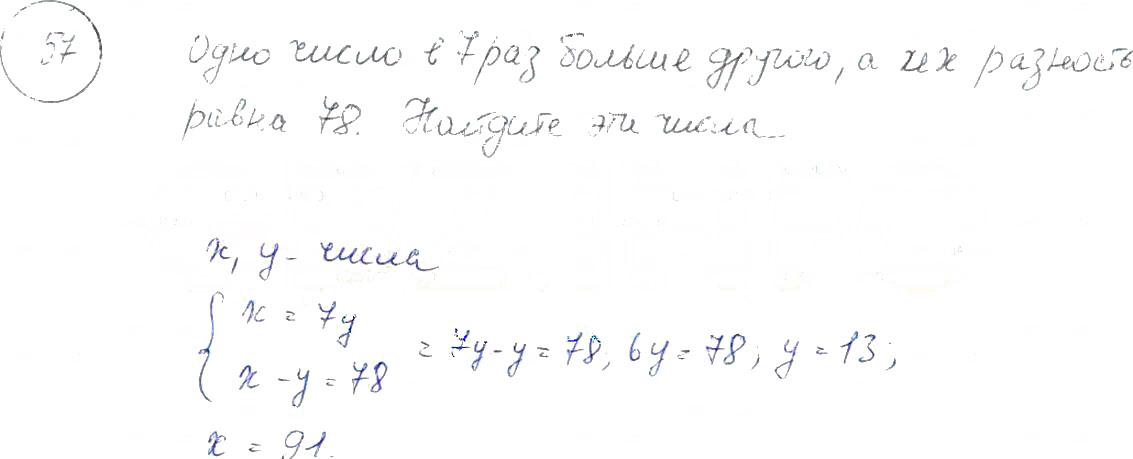 57
Одно число в 7 раз больше другого, а их разность
равна 78. Найдите эти числа
x, y - числа
{ x = 7y
x - y = 78
= 7y - y = 78, 6y = 78; y = 13;
x = 91.